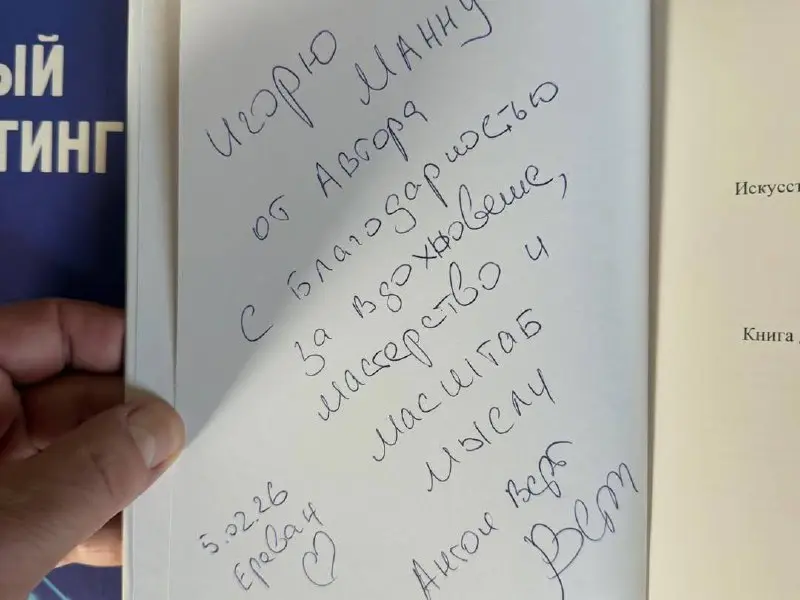 ЫЙ
ТИНГ
Игорю Манну
от Автора
с Благодарностью
за вдохновение,
мастерство и
масштаб
мысли
Антон Верт
5.02.26
Ереван
Искусст
Книга